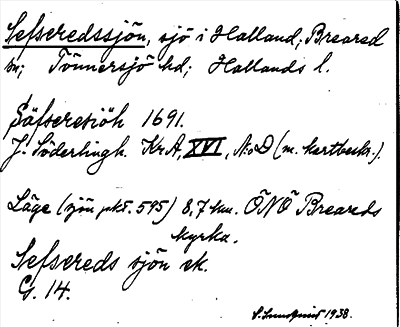 Sefseredssjön, sjö i Halland; Breared
sn; Tönnersjö hd; Hallands l.
Säfseresiöh 1691.
J. Söderlingh. KrA, XVI, N:o D (m. kartbeckn.).
Läge (sjön pkt. 595) 8,7 km. ÖNÖ Breareds
kyrka.
Sefsereds sjön ek.
G. 14.
1938.